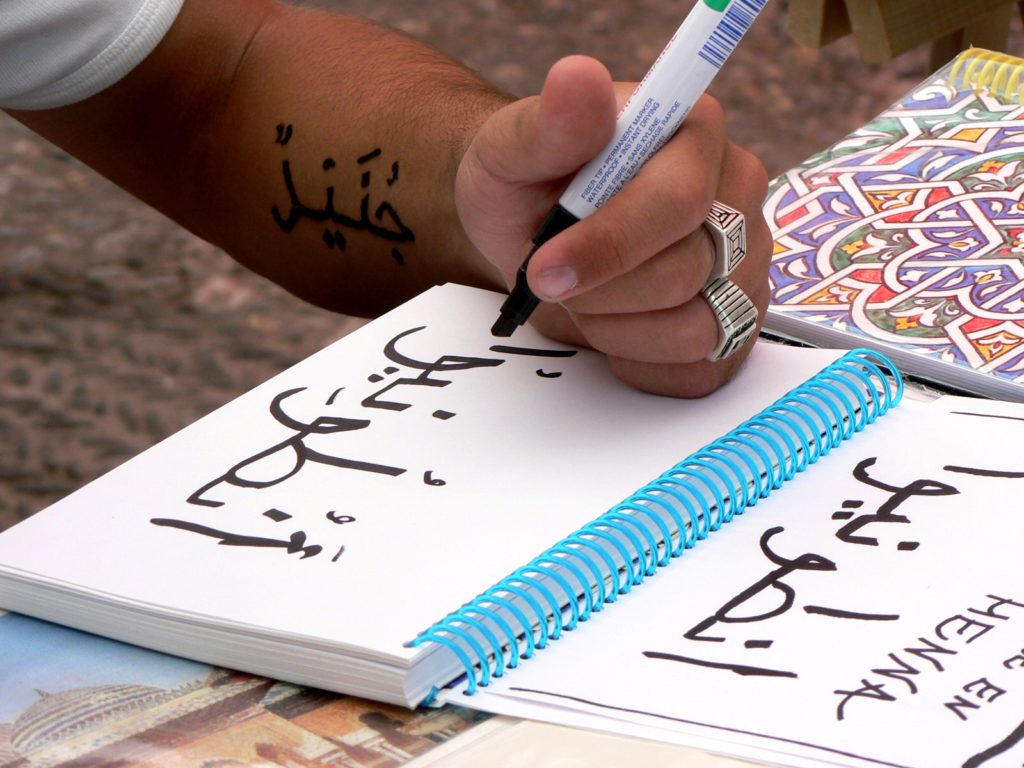 جُنَيْدٌ
FIBER TIP • PERMANENT MARKER
WATERPROOF • INSTANT DRYING
POINTE FIBRE • SANS XYLENE
A L'EAU • SECHAGE RAPIDE
أنطونيوا
انطونيوا
EN
HENNA